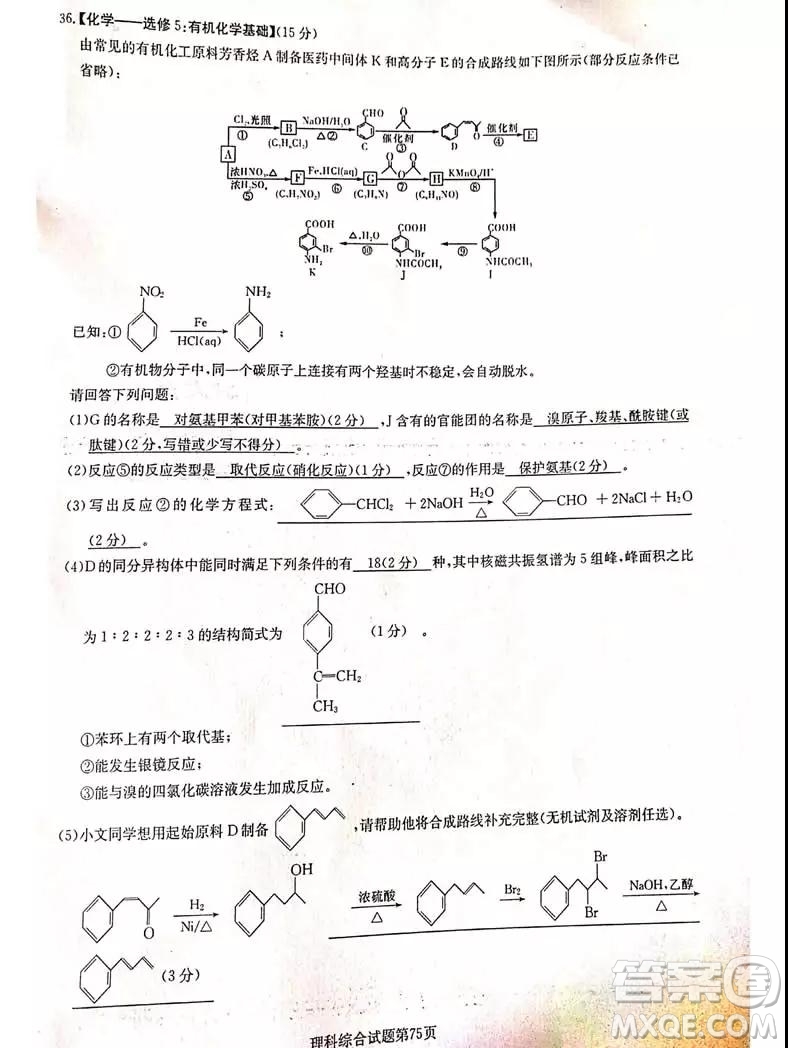 36.【化学——选修5:有机化学基础】(15分)
由常见的有机化工原料芳香烃A制备医药中间体K和高分子E的合成路线如下图所示(部分反应条件已
省略):
Cl₂,光照 ① B (C₇H₆Cl₂) NaOH/H₂O △② CHO C 催化剂 ③ O D 催化剂 ④ E
A
浓HNO₃,△ 浓H₂SO₄ ⑤ F (C₇H₇NO₂) Fe,HCl(aq) ⑥ G (C₇H₉N) O O O ⑦ H (C₉H₁₁NO) KMnO₄/H⁺ ⑧
COOH Br NH₂ K △,H₂O ⑩ COOH Br NHCOCH₃ J ⑨ COOH NHCOCH₃ I
已知:① NO₂ Fe HCl(aq) NH₂ ;
②有机物分子中,同一个碳原子上连接有两个羟基时不稳定,会自动脱水。
请回答下列问题:
(1)G的名称是 对氨基甲苯(对甲基苯胺)(2分) ,J含有的官能团的名称是 溴原子、羧基、酰胺键(或
肽键)(2分,写错或少写不得分) 。
(2)反应⑤的反应类型是 取代反应(硝化反应)(1分) ,反应⑦的作用是 保护氨基(2分) 。
(3)写出反应②的化学方程式: CHCl₂ +2NaOH H₂O △ CHO +2NaCl+H₂O
(2分) 。
(4)D的同分异构体中能同时满足下列条件的有 18(2分) 种,其中核磁共振氢谱为5组峰,峰面积之比
为1∶2∶2∶2∶3的结构简式为 CHO C=CH₂ CH₃ (1分) 。
①苯环上有两个取代基;
②能发生银镜反应;
③能与溴的四氯化碳溶液发生加成反应。
(5)小文同学想用起始原料D制备 ,请帮助他将合成路线补充完整(无机试剂及溶剂任选)。
O H₂ Ni/△ OH 浓硫酸 △ Br₂ Br Br NaOH,乙醇 △
(3分)
理科综合试题第75页
答案圈
MXQE.COM